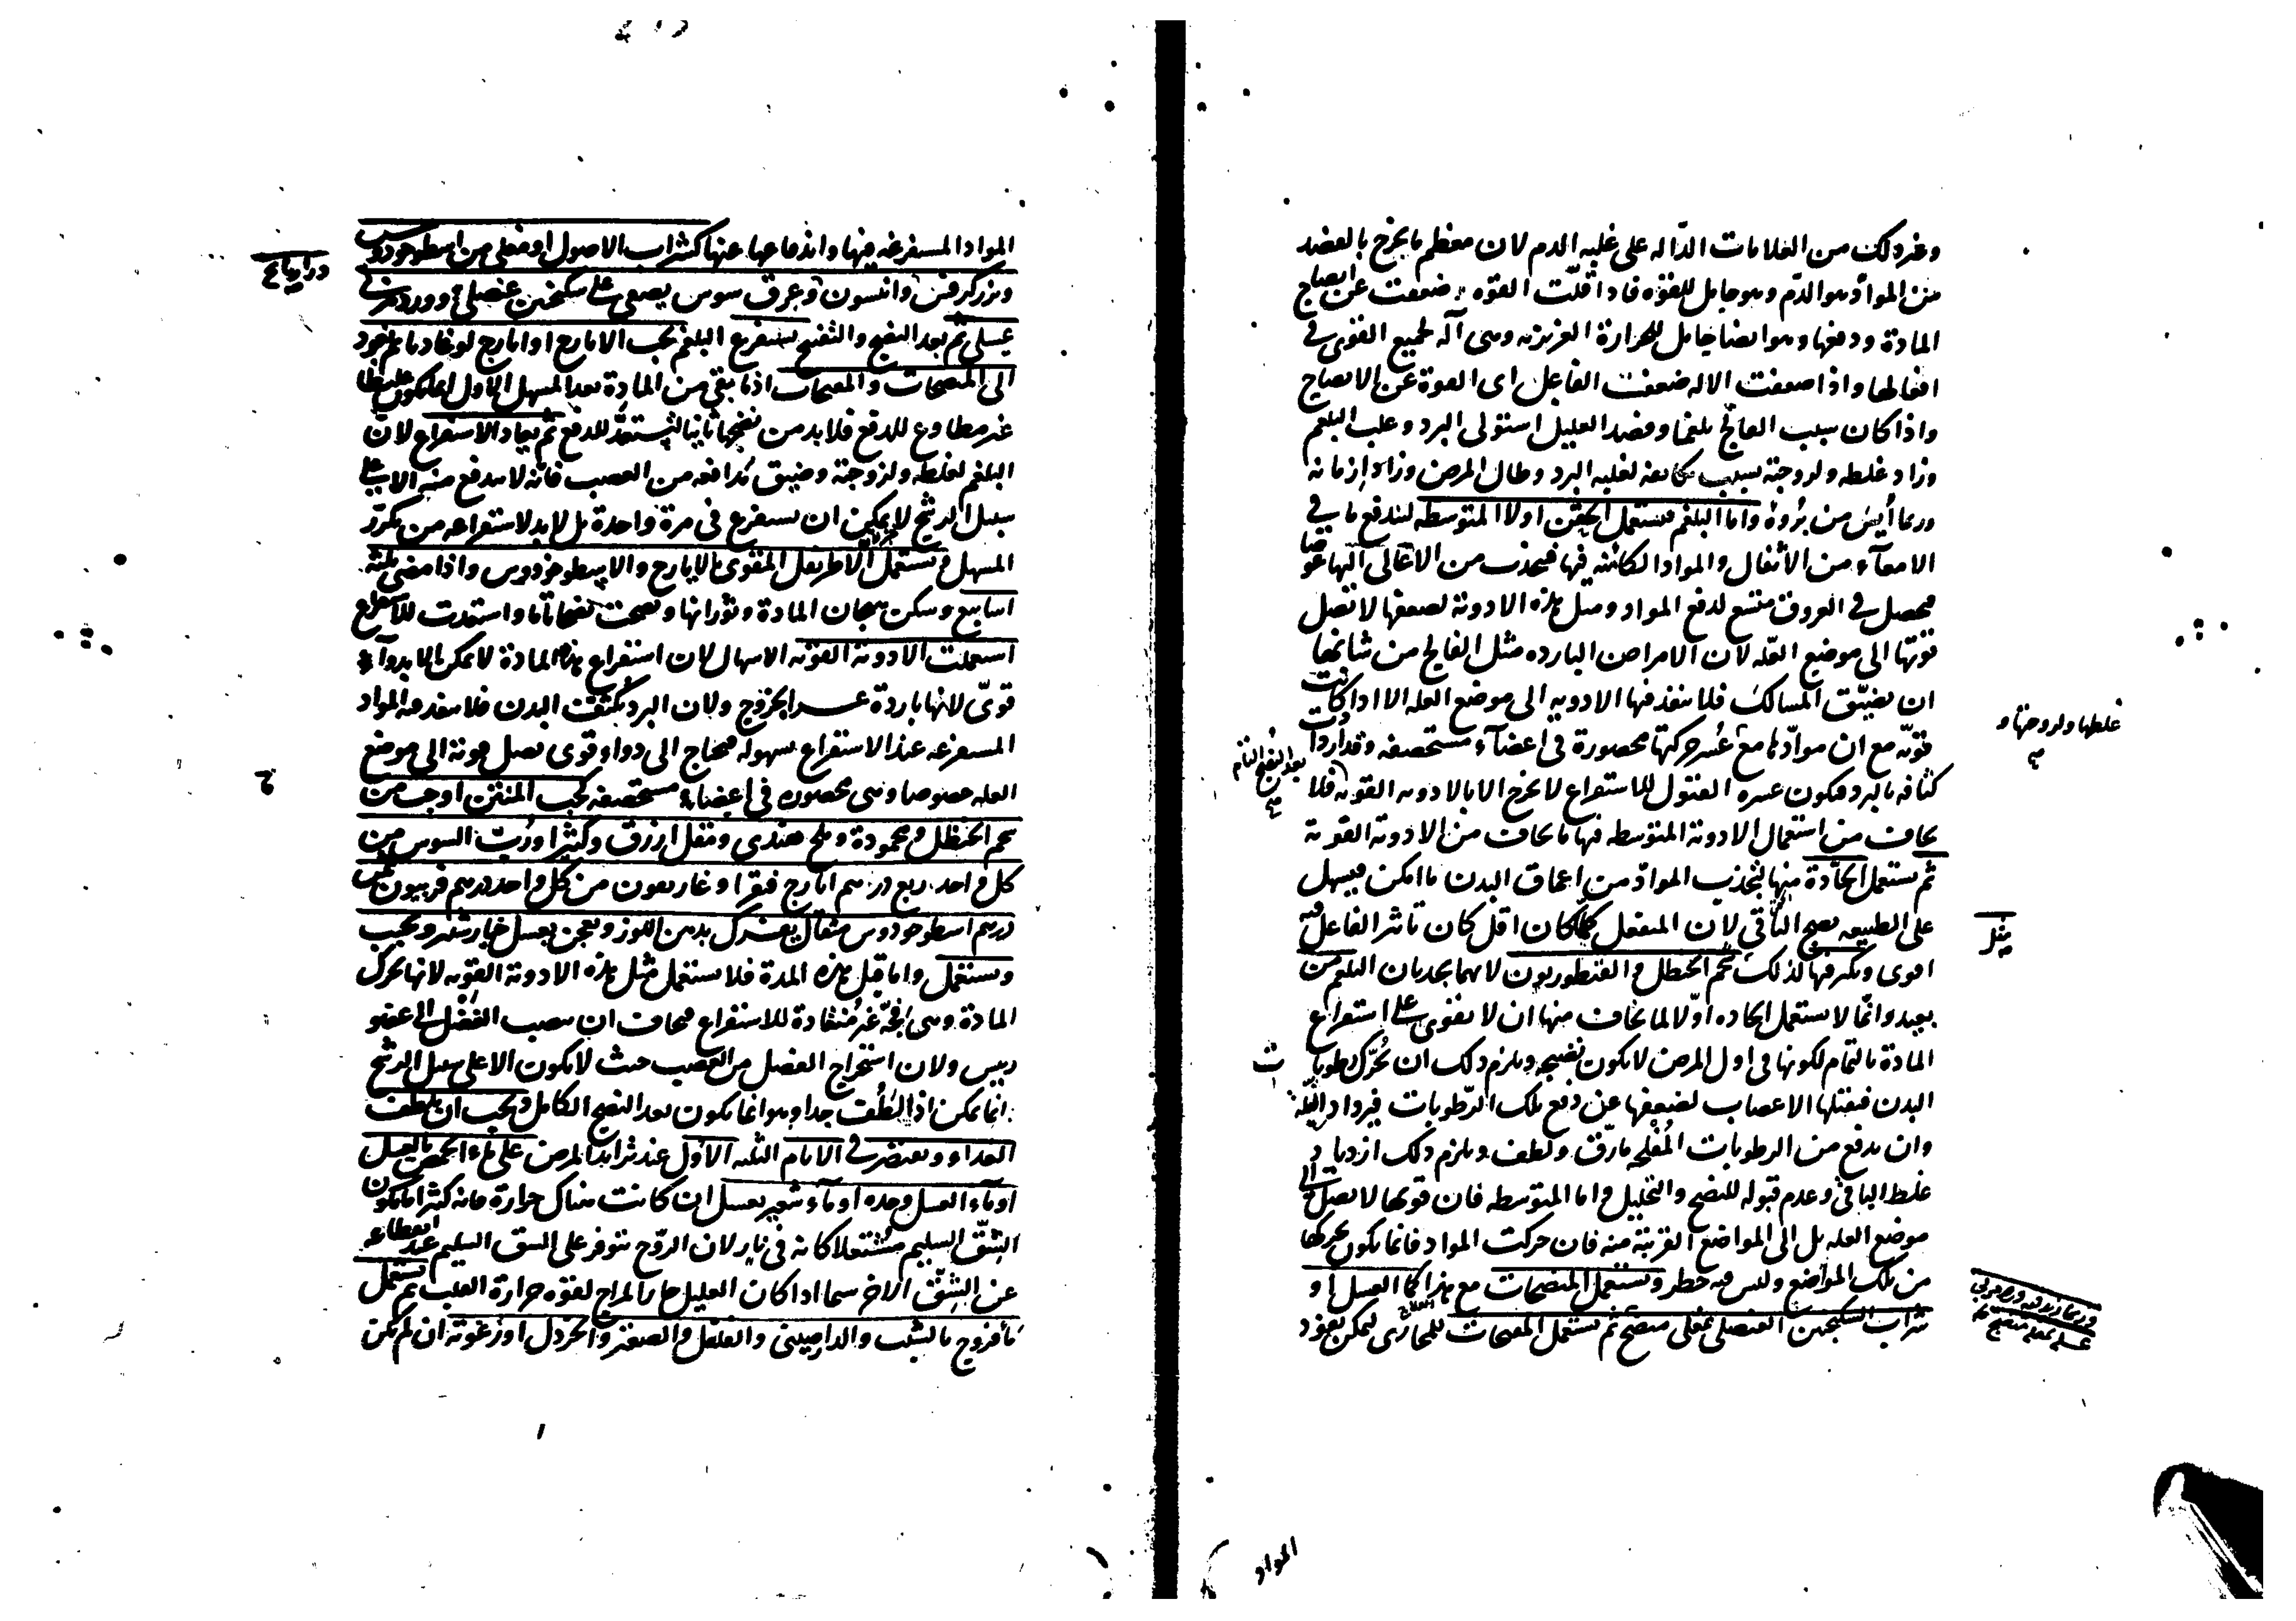 وغير ذلك من العلامات الدالة على غلبه الدم لان معظم ما يخرج بالفصد
من المواد هو الدم وهو حامل للقوه فاذا قلّت القوه ضعفت عن انضاج
المادة ودفعها وهو ايضا حامل للحرارة الغريزيه وهى آلة لجميع القوى فى
افعالها واذا ضعفت الاله ضعفت الفاعل اى القوة عن الانضاج
واذا كان سبب الفالج بلغما وفصد العليل استولى البرد وغلب البلغم
وزاد غلظه ولزوجته بسبب تكاثفه لغلبه البرد وطال المرض وزاد ازمانه
وربما أيس من برؤه واما البلغم فيستعمل الحقن اولا المتوسطه ليندفع ما فى
الامعآء من الاثفال والمواد الكائنه فيها فيجذب من الاعالى اليها عوضا
فيحصل فى العروق متسع لدفع المواد ومثل هذه الادوية لضعفها لا تصل
قوتها الى موضع العله لان الامراض البارده مثل الفالج من شانها
ان تضيّق المسالك فلا ينفذ فيها الادويه الى موضع العله الا اذا كانت
قويّه مع ان موادّها مع عُسر حركتها محصورة فى اعضآء مستحصفه وقد ازدادت
غلظها ولزوجتها و
كثافه بالبرد فيكون عسره القبول للاستفراغ لا يخرج الا بالادويه القويه فلا
بعد النضج التام
يخاف من استعمال الادوية المتوسطه فيها ما يخاف من الادوية القوية
ثم يستعمل الحادّة منها لتجذب الموادّ من اعماق البدن ما امكن فيسهل
على الطبيعه نضج الباقى لان المنفعل كلّما كان اقل كان تاثير الفاعل فيه
اقوى ويكثر فيها لذلك شحم الحنظل والقنطوريون لانهما يجذبان البلغم من
مثل
بعيد وانّما لا يستعمل الحاده اوّلا لما يخاف منها ان لا تقوى على استفراغ
المادة بالتمام لكونها فى اول المرض لا يكون نضيجه ويلزم ذلك ان تُحرّك رطوبات
البدن فتقبلها الاعصاب لضعفها عن دفع تلك الرّطوبات فيزداد العلّة
وان يدفع من الرطوبات المُفلجه ما رقّ ولطف ويلزم ذلك ازدياد
غلظ الباقى وعدم قبوله للنضج والتحليل واما المتوسطه فان قوتها لا تصل الى
موضع العله بل الى المواضع القريبة منه فان حركت المواد فانما يكون تحركها
من تلك المواضع وليس فيه خطر ويستعمل المنضجات مع هذا كماء العسل او
شراب السكنجبين العنصلى بمغلى منضج ثم يستعمل المفتحات للمجارى ليمكن نفوذ
المواد
المواد المستفرغه فيها واندفاعها عنها كشراب الاصول او مغلى من اسطوخودوس
وبزر كرفس وانيسون وعرق سوس يصفى على سكنجبين عنصلى او ورد مربى
عسلى ثم بعد النضج والتفتيح يستفرغ البلغم بحب الايارج او ايارج لوغاديا ثم يعود
الى المنضجات والمفتحات اذ ما بقى من المادة بعد المسهل الاول انما يكون غليظا
غير مطاوع للدفع فلا بد من نضجها ثانيا ليستعدّ للدفع ثم يعاد الاستفراغ لان
البلغم لغلظه ولزوجته وضيق مَدافعه من العصب فانه لا يندفع منه الا على
سبيل الرشح لا يمكن ان يستفرغ فى مرة واحدة بل لا بد لاستفراغه من تكرّر
المسهل ويستعمل الاطريفل المقوى بالايارج والاسطوخودوس واذا مضى ثلثة
اسابيع وسكن هيجان المادة وثورانها ونضجت نضجا تاما واستعدت للاستفراغ
استعملت الادوية القويه الاسهال لان استفراغ هذه المادة لا يمكن الا بدوآء
قوىّ لانها باردة عسرة الخروج ولان البرد يُكثّف البدن فلا ينفذ فيه المواد
المستفرغه عند الاستفراغ بسهوله فيحتاج الى دواء قوى يصل قوته الى موضع
العله خصوصا وهى محصوره فى اعضاء مستحصفه كحب المنتن او حب من
شحم الحنظل ومحمودة وملح هندى ومقل ازرق وكثيرا ورُبّ السوس من
كل واحد ربع درهم ايارج فيقرا وغاريقون من كل واحد درهم فربيون ثمن
درهم اسطوخودوس مثقال يفرك بدهن اللوز ويعجن بعسل خيارشنبر ويحبب
ويستعمل واما قبل هذه المدة فلا يستعمل مثل هذه الادوية القويه لانها تحرك
المادة وهى فجّة غير مُنقادة للاستفراغ فيخاف ان ينصب الفضل الى عضو
رييس ولان استخراج الفضل من العصب حيث لا يكون الا على سبيل الرشح
انما يمكن اذا لَطُفت جدا وهو انما يكون بعد النضج الكامل ويجب ان يلطف
الغداء ويقتصر فى الايام الثلثه الاوّل عند تزايد المرض على ماء الحمص بالعسل
او مآء العسل وحده او مآء شعير بعسل ان كانت هناك حرارة فانه كثيرا ما يكون
الشّقّ السليم مُشتعلا كانه فى نار لان الرّوح يتوفر على الشق السليم عند انقطاعه
عن الشِقّ الاخر سيما اذا كان العليل حار المزاج لقوه حرارة القلب ثم يستعمل
ماء فرّوج بالشبت والدارصينى والفلفل والصعتر والخردل او زغوته ان لم يكن